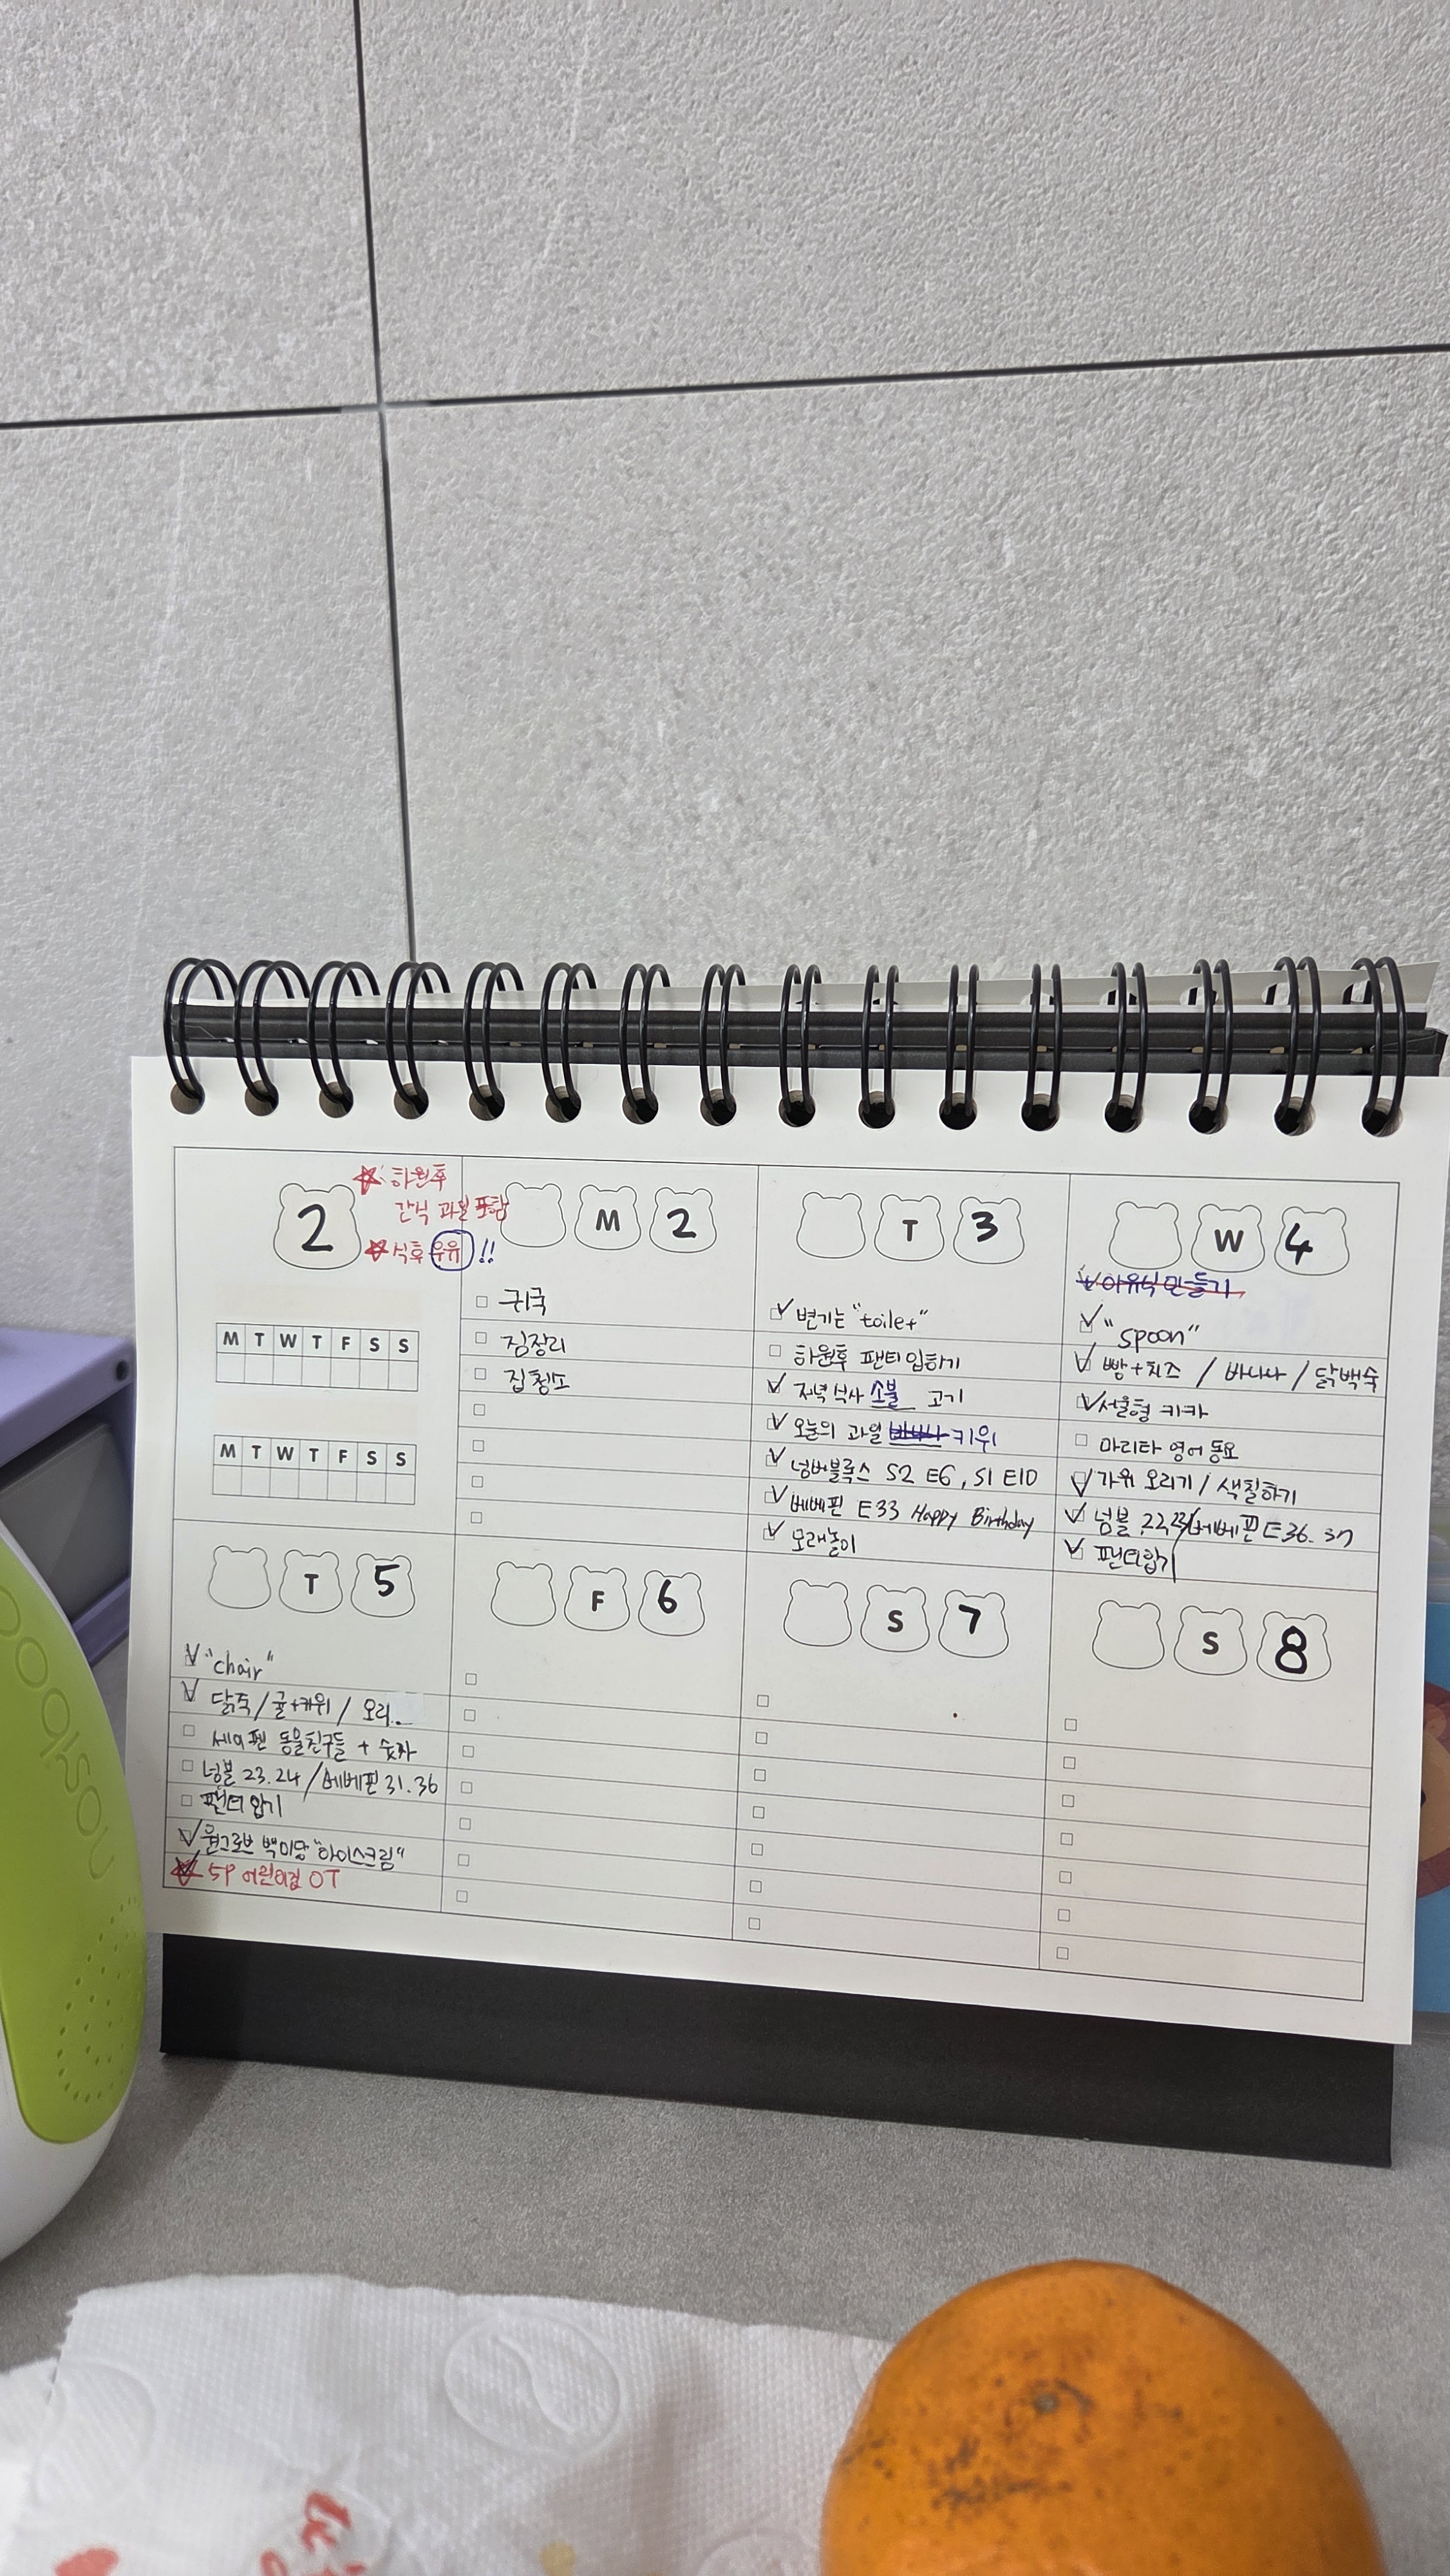 2
☆ 하원후
간식 과일 포함
☆ 식후 우유 !!
M T W T F S S
M T W T F S S
M 2
귀국
짐정리
집청소
T 3
변기는 "toilet"
하원후 팬티 입하기
저녁 식사 소불 고기
오늘의 과일 바나나 키위
넘버블록스 S2 E6, S1 E10
베베핀 E33 Happy Birthday
모래놀이
W 4
이유식 만들기
"spoon"
빵+치즈 / 바나나 / 닭백숙
서울형 키카
마리타 영어 동요
가위 오리기 / 색칠하기
넘블 22.23/베베핀 E36. 37
팬티입기
T 5
"chair"
닭죽/귤+키위 / 오리
세이펜 동물친구들 + 숫자
넘블 23.24 /베베핀 31.36
팬티 입기
원그로브 백미당 "아이스크림"
5P 어린이집 OT
F 6
S 7
S 8